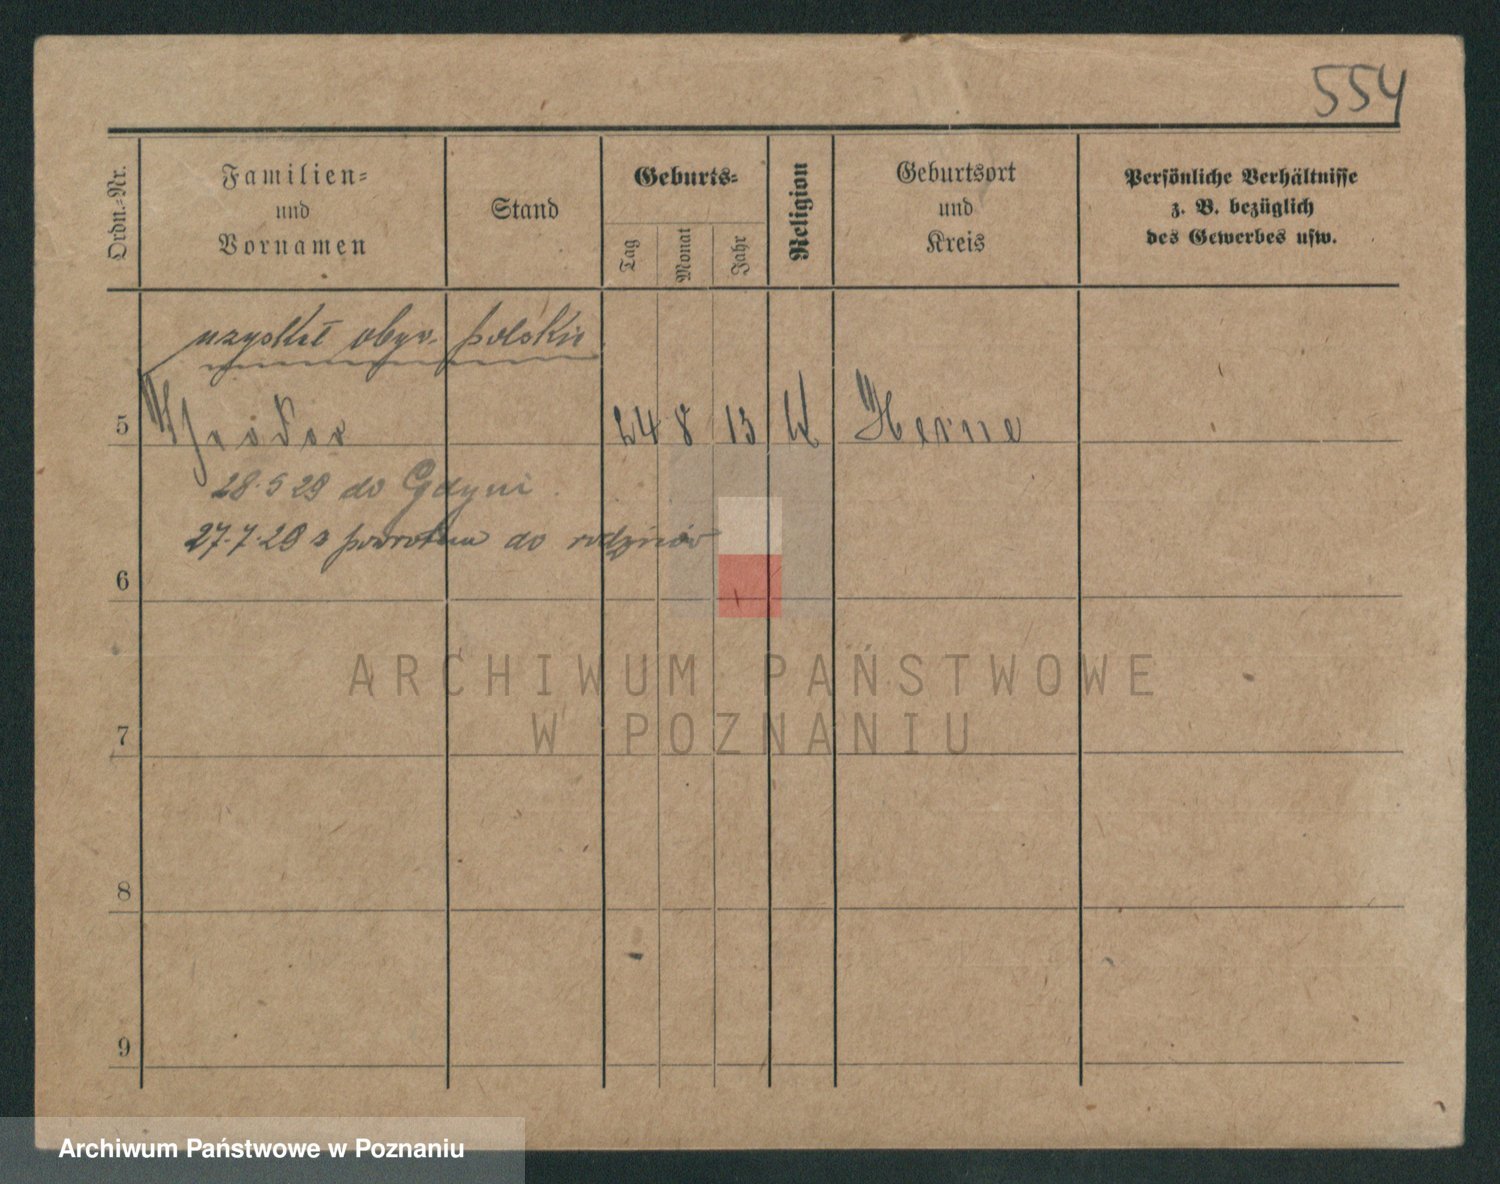 554
Ordn.-Nr.
Familien-
und
Vornamen
Stand
Geburts-
Tag
Monat
Jahr
Religion
Geburtsort
und
Kreis
Persönliche Verhältnisse
z. B. bezüglich
des Gewerbes usw.
uzyskał obyw. polskie
5
24 8 13 Herne
28.5 29 do Gdyni
27.7.29 z powrotem do rodziców
6
7
8
9
ARCHIWUM PAŃSTWOWE
W POZNANIU
Archiwum Państwowe w Poznaniu